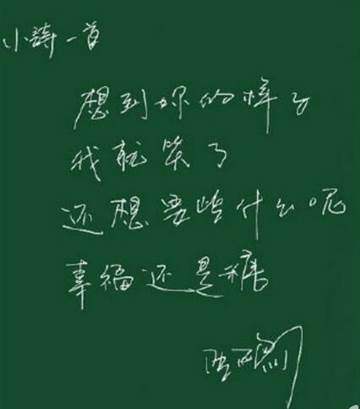 小詩一首
想到你的样子
我就笑了
还想要些什么呢
幸福还是糖